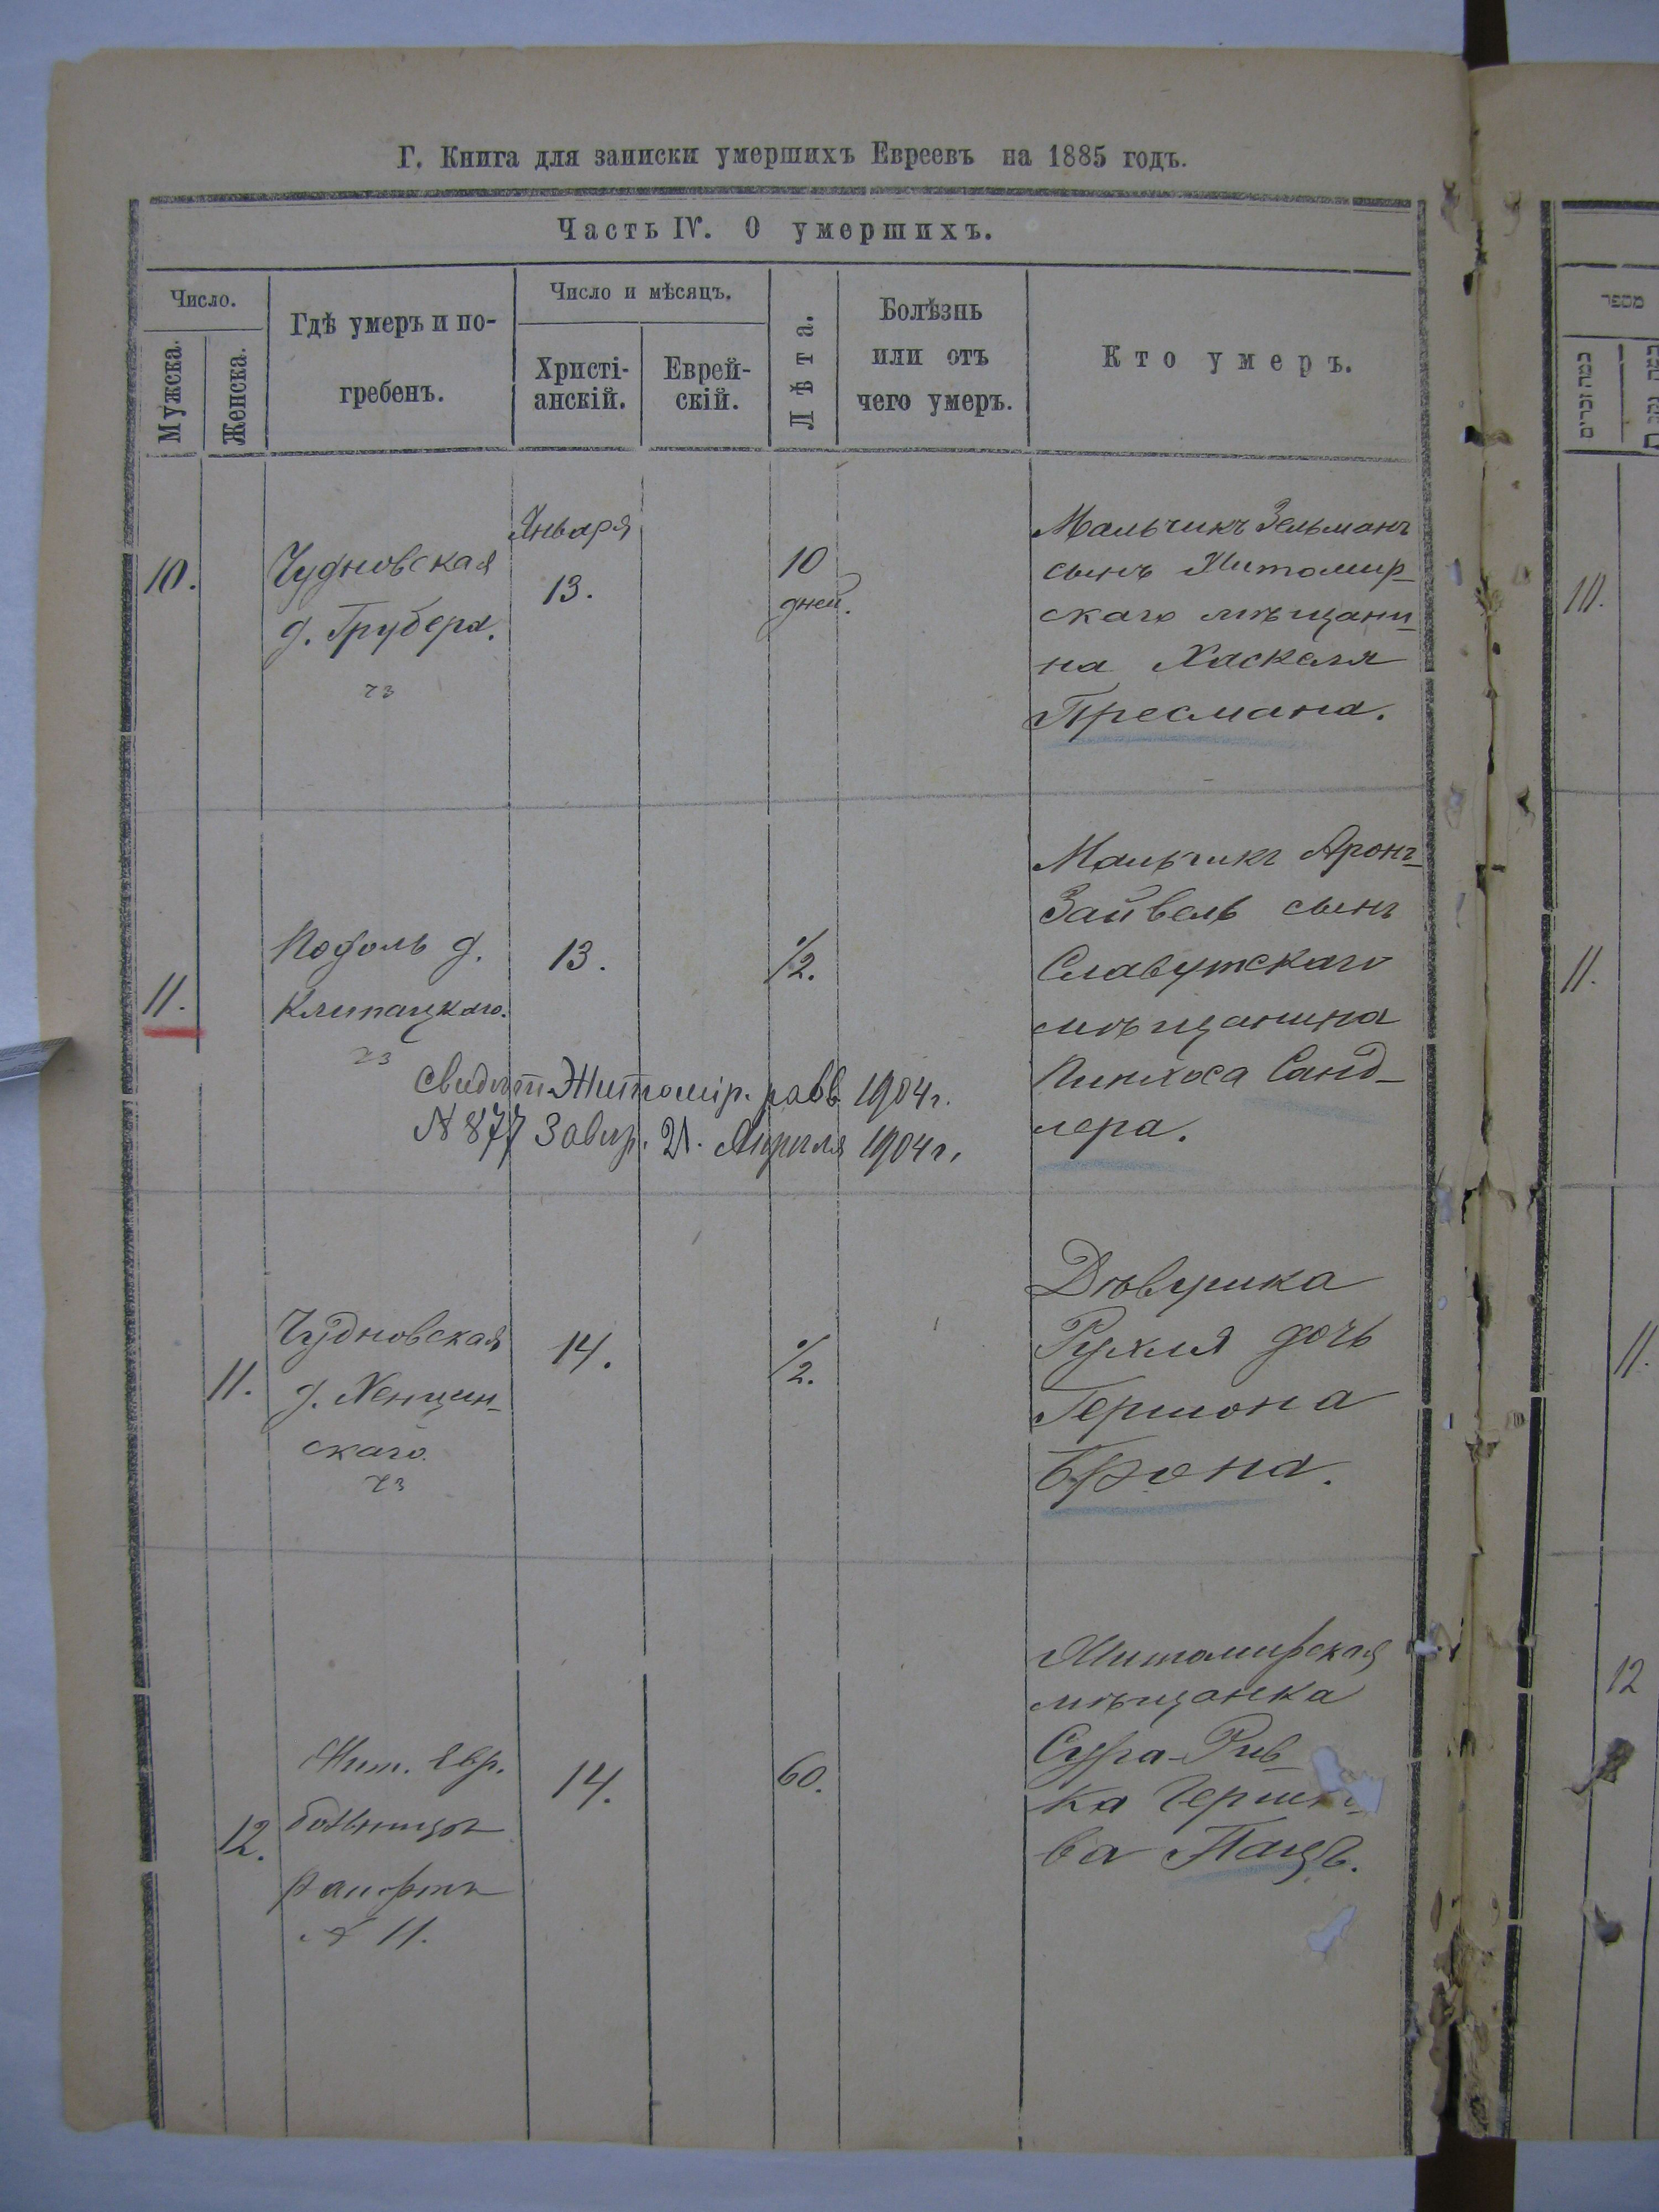 Г. Книга для записки умершихъ Евреевъ на 1885 годъ.
Часть IV. О умершихъ.
Число.
Мужска.
Женска.
Гдѣ умеръ и по-
гребенъ.
Число и мѣсяцъ.
Христі-
анскій.
Еврей-
скій.
Лѣта.
Болѣзнь
или отъ
чего умеръ.
Кто умеръ.
10.
Чудновская
д. Грубера.
Января
13.
10
дней.
Мальчикъ Зельманъ
сынъ Житомир-
скаго мѣщани-
на Хаскеля
Пресмана.
11.
Подоль д.
13.
1/2.
Мальчикъ Аронъ-
Зайвель сынъ
Славутскаго
мѣщанина
Пинхоса Санд-
лера.
Свидѣт. Житомір. равв. 1904 г.
№ 877 Завѣр. 21. Апрѣля 1904 г.
11.
Чудновская
д.
скаго.
14.
1/2.
Дѣвушка
Рухля дочь
Гершона
Брона.
12.
Жит. Евр.
больницы
рапортъ
№ 11.
14.
60.
Житомирская
мѣщанка
Сура-Рив-
ка
ва Пацъ.
מספר
כמה זכרים
10.
11.
11.
12